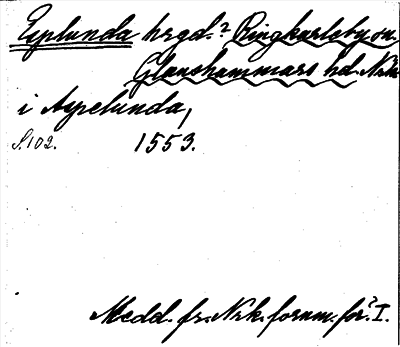 Esplunda hrgd? Ringkarleby sn.
Glanshammars hd. Nrk.
i Aspelunda,
S. 102. 1553.
Medd. fr. Nrk. fornm. för? I.